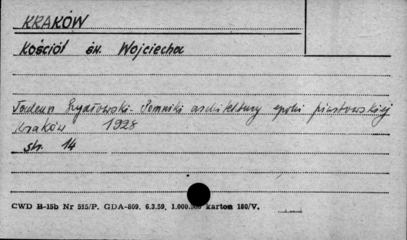 KRAKÓW
Kościół św. Wojciecha
Tadeusz Szydłowski - Pomniki architektury epoki piastowskiej
Kraków 1928
str. 14
CWD H-15b Nr 515/P. GDA-809. 6.3.59. 1.000.000 karton 180/V.